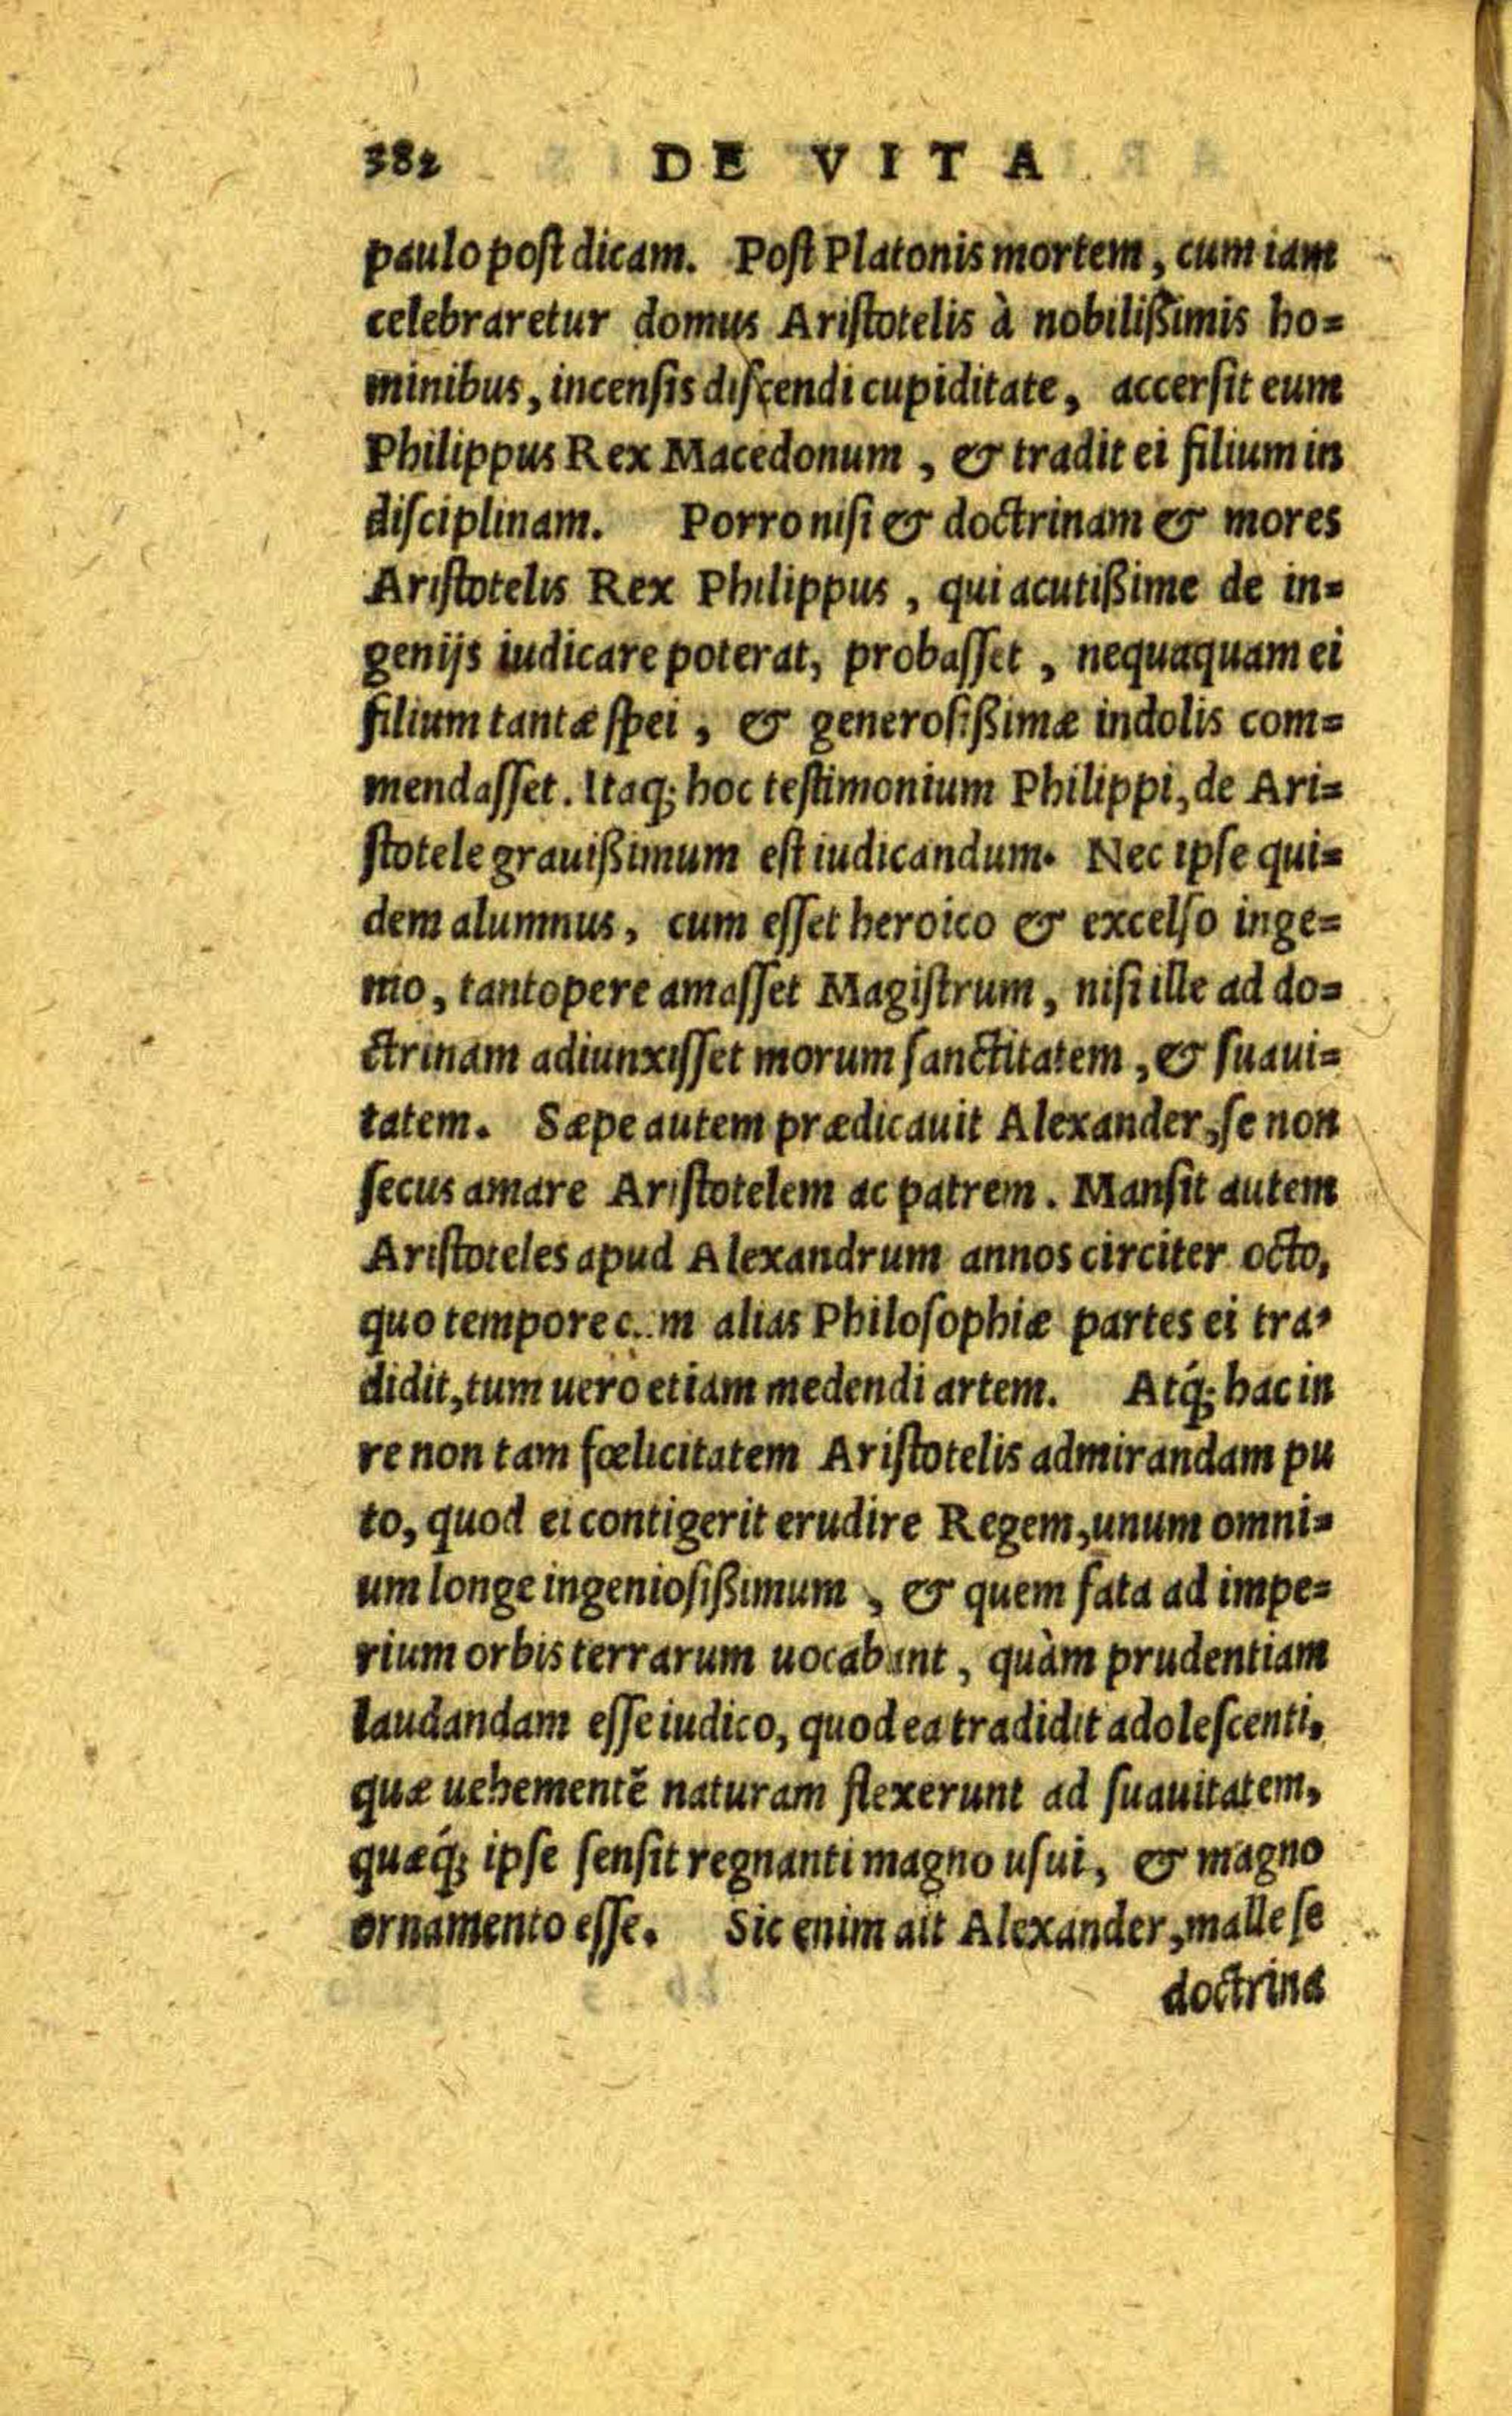 382 DE VITA
paulo post dicam. Post Platonis mortem, cum iam
celebraretur domus Aristotelis à nobilißimis ho=
minibus, incensis discendi cupiditate, accersit eum
Philippus Rex Macedonum, & tradit ei filium in
disciplinam. Porro nisi & doctrinam & mores
Aristotelis Rex Philippus, qui acutißime de in=
genijs iudicare poterat, probasset, nequaquam ei
filium tantæ spei, & generosißimæ indolis com=
mendasset. Itaq; hoc testimonium Philippi, de Ari=
stotele grauißimum est iudicandum. Nec ipse qui=
dem alumnus, cum esset heroico & excelso inge=
nio, tantopere amasset Magistrum, nisi ille ad do=
ctrinam adiunxisset morum sanctitatem, & suaui=
tatem. Sæpe autem prædicauit Alexander, se non
secus amare Aristotelem ac patrem. Mansit autem
Aristoteles apud Alexandrum annos circiter octo,
quo tempore cum alias Philosophiæ partes ei tra=
didit, tum uero etiam medendi artem. Atq́; hac in
re non tam fœlicitatem Aristotelis admirandam pu
to, quod ei contigerit erudire Regem, unum omni=
um longe ingeniosißimum, & quem fata ad impe=
rium orbis terrarum uocabant, quàm prudentiam
laudandam esse iudico, quod ea tradidit adolescenti,
quæ uehementẽ naturam flexerunt ad suauitatem,
quæq́; ipse sensit regnanti magno usui, & magno
ornamento esse. Sic enim ait Alexander, malle se
doctrina